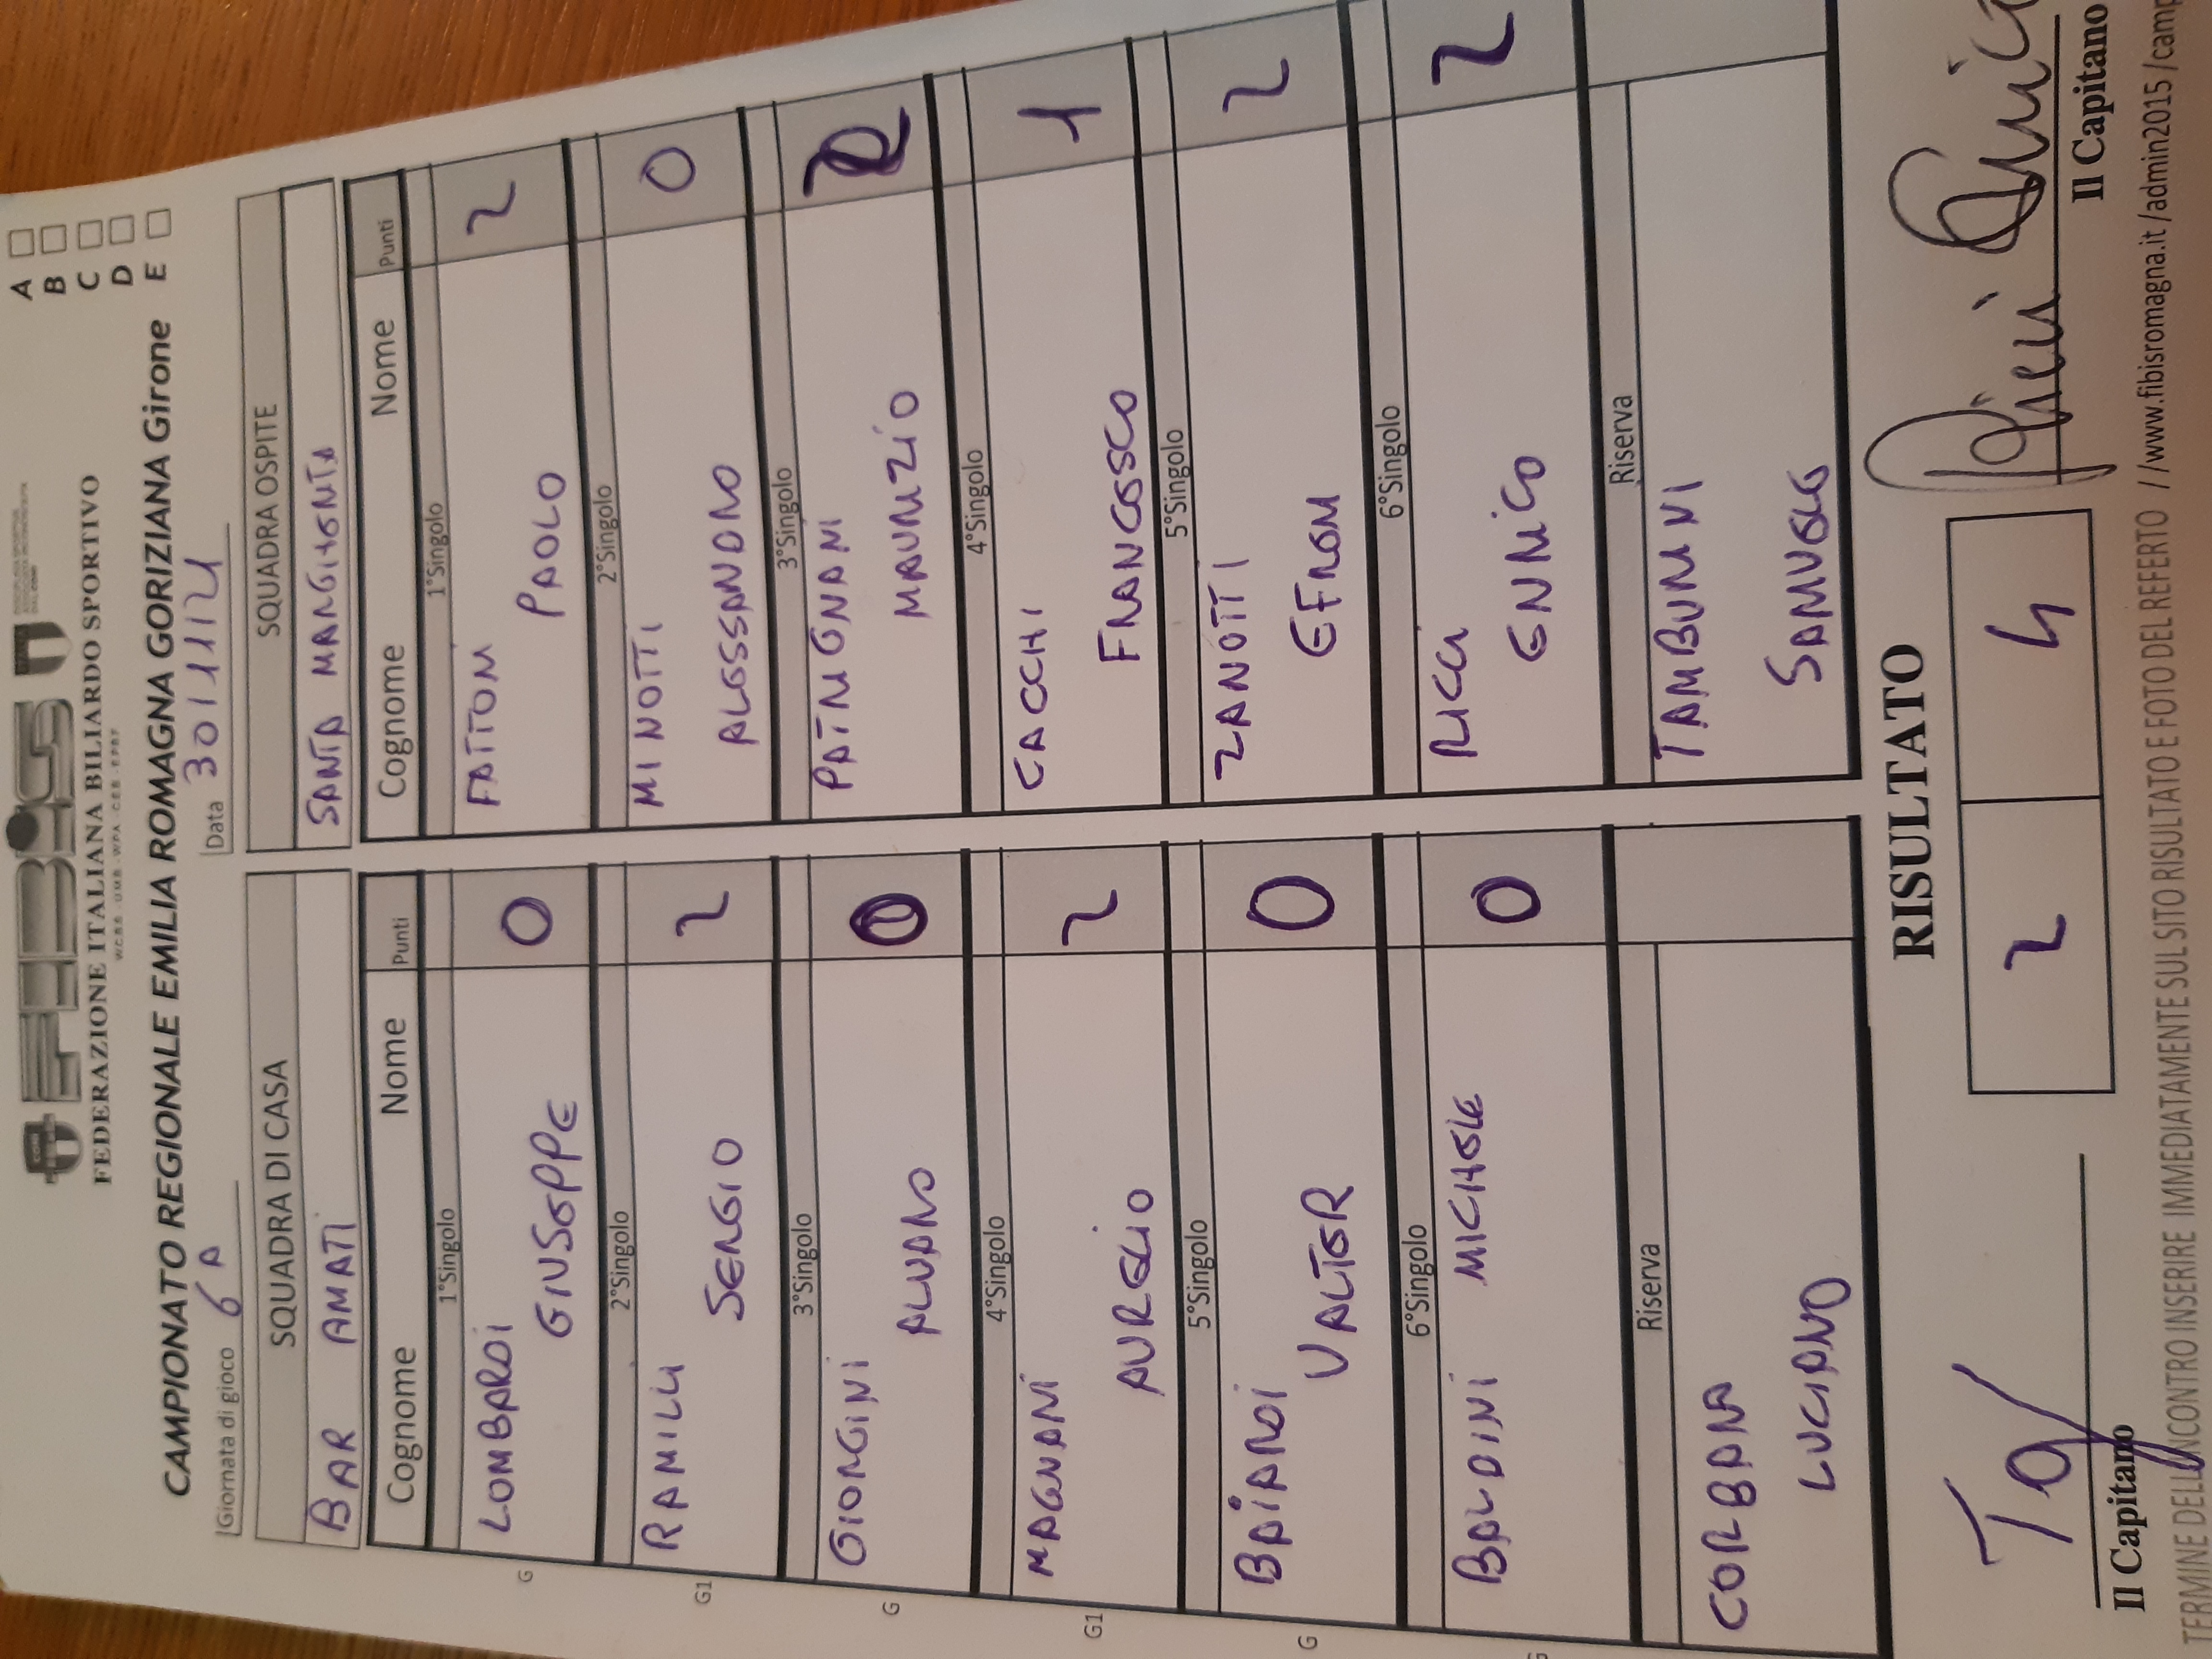 FEDERAZIONE ITALIANA BILIARDO SPORTIVO
CAMPIONATO REGIONALE EMILIA ROMAGNA GORIZIANA Girone
A
B
C
D
E
Giornata di gioco 6A
Data 30/11/21
SQUADRA DI CASA
BAR AMATI
Cognome Nome Punti
1°Singolo
G LOMBARDI GIUSEPPE 0
2°Singolo
G1 RAMILLI SERGIO 2
3°Singolo
G GIORGINI ALVARO 0
4°Singolo
G1 MAGNANI AURELIO 2
5°Singolo
G BAIARDI VALTER 0
6°Singolo
BALDINI MICHELE 0
Riserva
CORBARA LUCIANO
SQUADRA OSPITE
SANTA MARGHERITA
Cognome Nome Punti
1°Singolo
FATTORI PAOLO 2
2°Singolo
MINOTTI ALESSANDRO 0
3°Singolo
PATRIGNANI MAURIZIO 2
4°Singolo
CACCHI FRANCESCO 1
5°Singolo
ZANOTTI EFREM 2
6°Singolo
RICCI ENRICO 2
Riserva
TAMBURINI SAMUELE
RISULTATO
2 4
Il Capitano
Il Capitano
TERMINE DELL'INCONTRO INSERIRE IMMEDIATAMENTE SUL SITO RISULTATO E FOTO DEL REFERTO //www.fibisromagna.it /admin2015 /camp